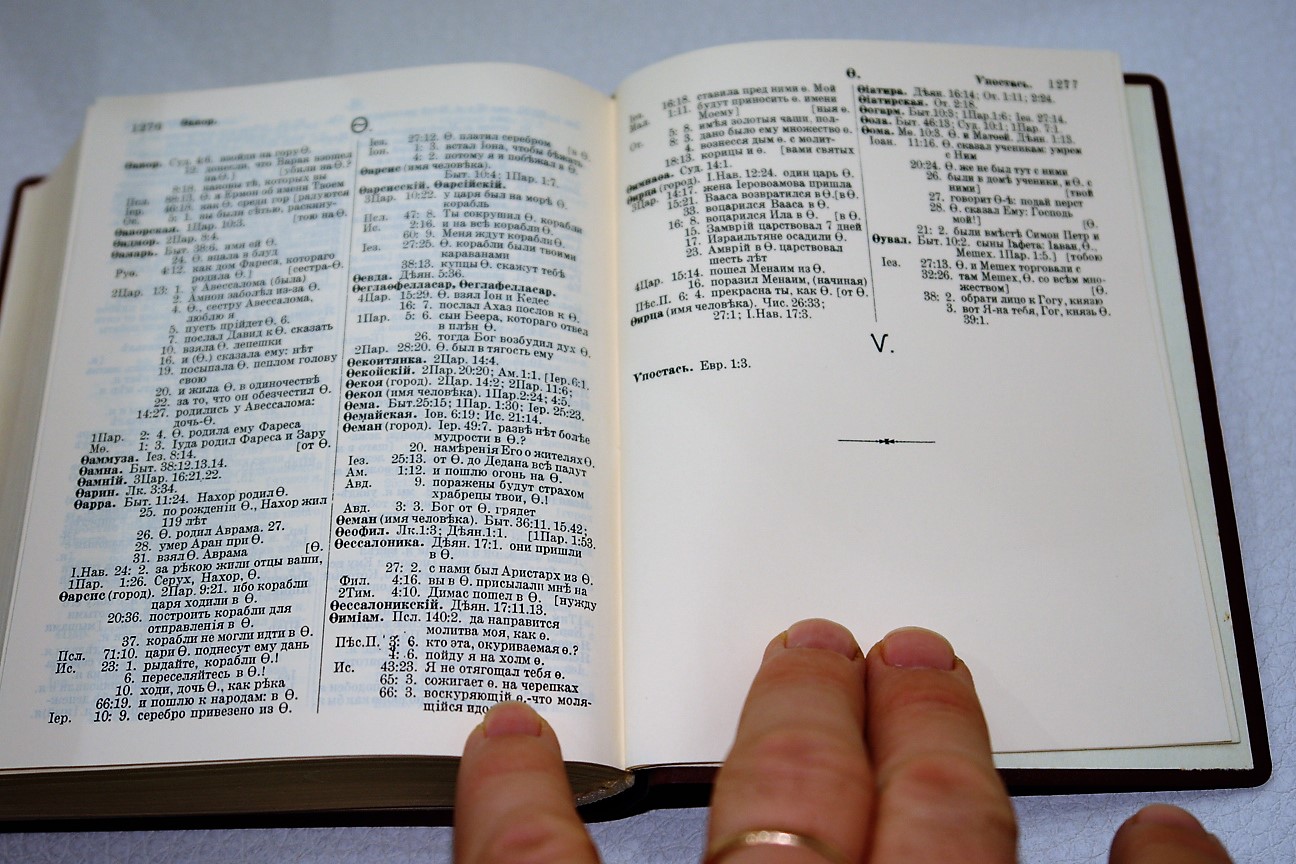 1276 Ѳавор.
Ѳ.
Ѳавор. Суд. 4:6. взойди на гору Ѳ.
12. донесли, что Варак взошел
на Ѳ.! [убили на Ѳ.?
8:18. каковы тѣ, которых вы
Псл. 88:13. Ѳ. и Ермон об имени Твоем
Іер. 46:18. как Ѳ. среди гор [радуются
Ос. 5: 1. вы были сѣтью, раскину-
Ѳаворская. 1Цар. 10:3. [тою на Ѳ.
Ѳадмор. 2Пар. 8:4.
Ѳамарь. Быт. 38:6. имя ей Ѳ.
24. Ѳ. впала в блуд
Руѳ. 4:12. как дом Фареса, котораго
родила Ѳ.! [сестра-Ѳ.
2Цар. 13: 1. у Авессалома (была)
2. Амнон заболѣл из-за Ѳ.
4. Ѳ., сестру Авессалома,
люблю я
5. пусть прійдет Ѳ. 6.
7. послал Давид к Ѳ. сказать
10. взяла Ѳ. лепешки
16. и (Ѳ.) сказала ему: нѣт
19. посыпала Ѳ. пеплом голову
свою
20. и жила Ѳ. в одиночествѣ
22. за то, что он обезчестил Ѳ.
14:27. родились у Авессалома:
дочь-Ѳ.
1Пар. 2: 4. Ѳ. родила ему Фареса
Мѳ. 1: 3. Іуда родил Фареса и Зару
Ѳаммуза. Іез. 8:14. [от Ѳ.
Ѳамна. Быт. 38:12.13.14.
Ѳамній. 3Цар. 16:21.22.
Ѳарин. Лк. 3:34.
Ѳарра. Быт. 11:24. Нахор родил Ѳ.
25. по рожденіи Ѳ., Нахор жил
119 лѣт
26. Ѳ. родил Аврама. 27.
28. умер Аран при Ѳ.
31. взял Ѳ. Аврама [Ѳ.
І.Нав. 24: 2. за рѣкою жили отцы ваши,
1Пар. 1:26. Серух, Нахор, Ѳ.
Ѳарсис (город). 2Пар. 9:21. ибо корабли
царя ходили в Ѳ.
20:36. построить корабли для
отправленія в Ѳ.
37. корабли не могли идти в Ѳ.
Псл. 71:10. цари Ѳ. поднесут ему дань
Ис. 23: 1. рыдайте, корабли Ѳ.!
6. переселяйтесь в Ѳ.!
10. ходи, дочь Ѳ., как рѣка
66:19. и пошлю к народам: в Ѳ.
Іер. 10: 9. серебро привезено из Ѳ.
Іез. 27:12. Ѳ. платил серебром
Іон. 1: 3. встал Іона, чтобы бѣжать [в Ѳ.
4: 2. потому я и побѣжал в Ѳ.
Ѳарсис (имя человѣка).
Быт. 10:4; 1Пар. 1:7.
Ѳарсисскій, Ѳарсійскій.
3Цар. 10:22. у царя был на морѣ Ѳ.
корабль
Псл. 47: 8. Ты сокрушил Ѳ. корабли
Ис. 2:16. и на всѣ корабли Ѳ.
60: 9. Меня ждут корабли Ѳ.
Іез. 27:25. Ѳ. корабли были твоими
караванами
38:13. купцы Ѳ. скажут тебѣ
Ѳевда. Дѣян. 5:36.
Ѳеглаѳелласар, Ѳеглафелласар.
4Цар. 15:29. Ѳ. взял Іон и Кедес
16: 7. послал Ахаз послов к Ѳ.
1Пар. 5: 6. сын Беера, котораго отвел
в плѣн Ѳ.
26. тогда Бог возбудил дух Ѳ.
2Пар. 28:20. Ѳ. был в тягость ему
Ѳекоитянка. 2Цар. 14:4.
Ѳекойскій. 2Пар. 20:20; Ам. 1:1. [Іер. 6:1.
Ѳекоя (город). 2Цар. 14:2; 2Пар. 11:6;
Ѳекоя (имя человѣка). 1Пар. 2:24; 4:5.
Ѳема. Быт. 25:15; 1Пар. 1:30; Іер. 25:23.
Ѳемайская. Іов. 6:19; Ис. 21:14.
Ѳеман (город). Іер. 49:7. развѣ нѣт болѣе
мудрости в Ѳ.?
20. намѣренія Его о жителях Ѳ.
Іез. 25:13. от Ѳ. до Дедана всѣ падут
Ам. 1:12. и пошлю огонь на Ѳ.
Авд. 9. поражены будут страхом
храбрецы твои, Ѳ.!
Авд. 3: 3. Бог от Ѳ. грядет
Ѳеман (имя человѣка). Быт. 36:11. 15.42;
Ѳеофил. Лк. 1:3; Дѣян. 1:1. [1Пар. 1:53.
Ѳессалоника. Дѣян. 17:1. они пришли
в Ѳ.
27: 2. с нами был Аристарх из Ѳ.
Фил. 4:16. вы в Ѳ. присылали мнѣ на
2Тим. 4:10. Димас пошел в Ѳ. [нужду
Ѳессалоникскій. Дѣян. 17:11.13.
Ѳиміам. Псл. 140:2. да направится
молитва моя, как ѳ.
Пѣс.П. 3: 6. кто эта, окуриваемая ѳ.?
4: 6. пойду я на холм ѳ.
Ис. 43:23. Я не отягощал тебя ѳ.
65: 3. сожигает ѳ. на черепках
66: 3. воскуряющій ѳ.-что моля-
щійся идо
Ѳ. Упостась. 1277
16:18. ставила пред ними ѳ. Мой
Мал. 1:11. будут приносить ѳ. имени
Моему] [ныя ѳ.
От. 5: 8. имѣя золотыя чаши, пол-
8: 3. дано было ему множество ѳ.
4. вознесся дым ѳ. с молит-
18:13. корицы и ѳ. [вами святых
Ѳимнаѳа. Суд. 14:1.
Ѳирца (город). І.Нав. 12:24. один царь Ѳ.
3Цар. 14:17. жена Іеровоамова пришла
15:21. Вааса возвратился в Ѳ. [в Ѳ.
33. воцарился Вааса в Ѳ.
16: 8. воцарился Ила в Ѳ. [в Ѳ.
15. Замврій царствовал 7 дней
17. Израильтяне осадили Ѳ.
23. Амврій в Ѳ. царствовал
шесть лѣт
4Цар. 15:14. пошел Менаим из Ѳ.
16. поразил Менаим, (начиная)
Пѣс.П. 6: 4. прекрасна ты, как Ѳ. [от Ѳ.
Ѳирца (имя человѣка). Чис. 26:33;
27:1; І.Нав. 17:3.
Ѳіатира. Дѣян. 16:14; От. 1:11; 2:24.
Ѳіатирская. От. 2:18.
Ѳогарм. Быт. 10:3; 1Пар. 1:6; Іез. 27:14.
Ѳола. Быт. 46:13; Суд. 10:1; 1Пар. 7:1.
Ѳома. Мѳ. 10:3. Ѳ. и Матѳей. Дѣян. 1:13.
Іоан. 11:16. Ѳ. сказал ученикам: умрем
с Ним
20:24. Ѳ. же не был тут с ними
26. были в домѣ ученики, и Ѳ. с
ними] [твой
27. говорит Ѳ-ѣ: подай перст
28. Ѳ. сказал Ему: Господь
мой!] [Ѳ.
21: 2. были вмѣстѣ Симон Петр и
Ѳувал. Быт. 10:2. сыны Іафета: Іаван, Ѳ.,
Мешех. 1Пар. 1:5.] [тобою
Іез. 27:13. Ѳ. и Мешех торговали с
32:26. там Мешех, Ѳ. со всѣм мно-
жеством] [Ѳ.
38: 2. обрати лицо к Гогу, князю
3. вот Я-на тебя, Гог, князь Ѳ.
39:1.
Ѵ.
Ѵпостась. Евр. 1:3.